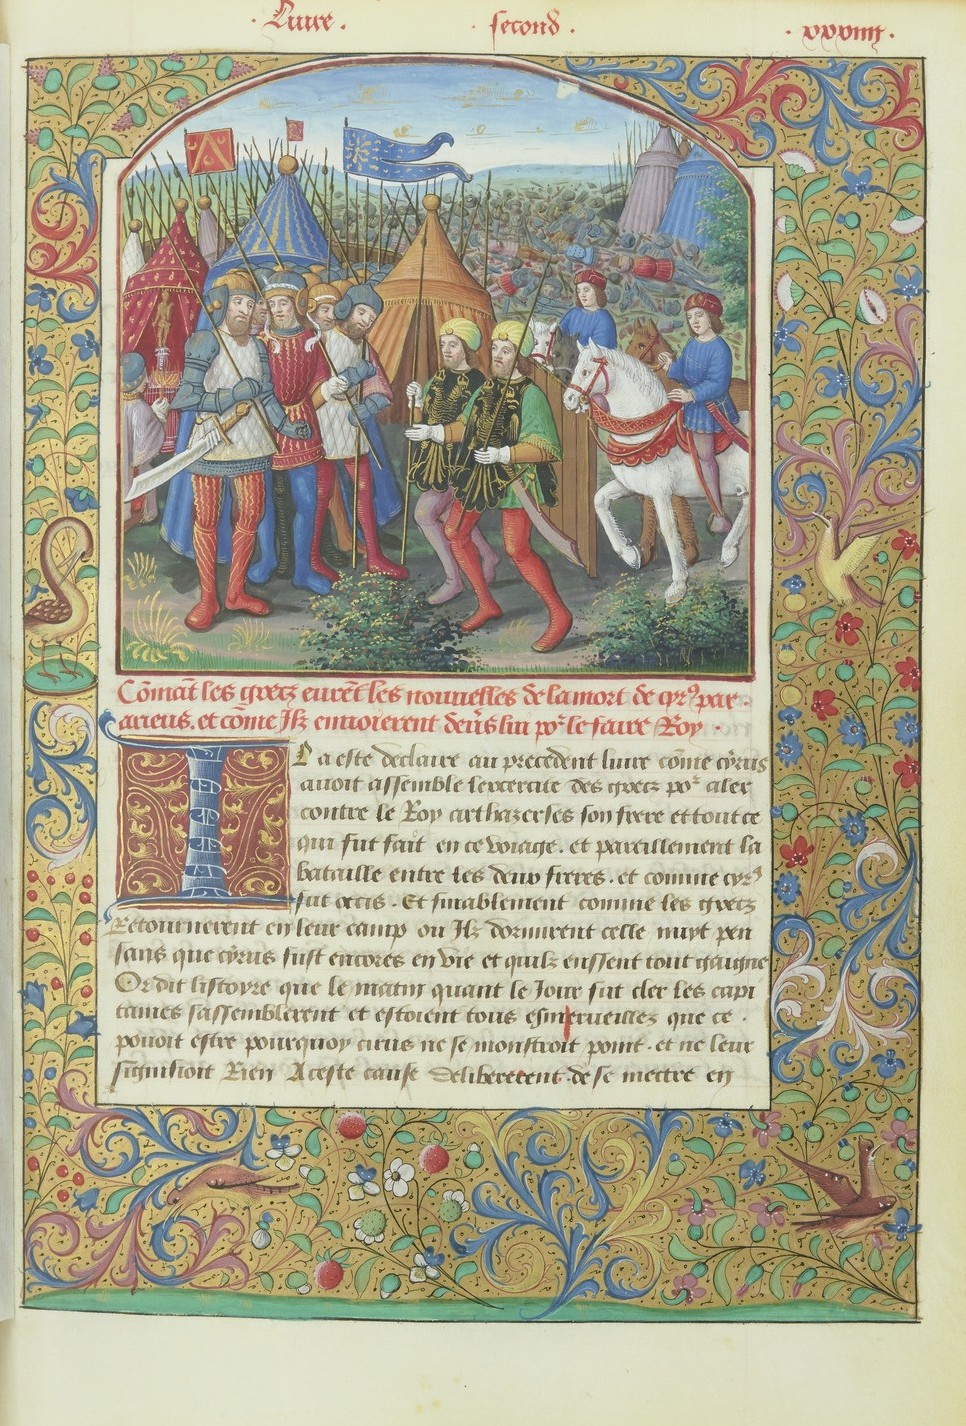 · Livre · · second · · xxxiiij ·
Cõmãt les grecz eurẽt les nouvelles de la mort de cyrꝰ par
arieus. et cõme Ilz envoierent deṽs lui poʳ le faire Roy ·
IL a este declaire au precedent livre cõme cyrus
avoit assemble lexercite des grecz poʳ aler
contre le Roy arthazerses son frere et tout ce
qui fut fait en ce voiage. et pareillement la
bataille entre les deux freres. et comme cyrꝰ
fut occis. Et sẽnablement comme les grecz
Retournerent en leur camp ou Ilz dormirent celle nuyt pen
sans que cyrus fust encores en vie et quilz eussent tout gaigne
Or dit listoyre que le matin quant le Jour fut cler les capi
taines sassemblerent et estoient tous esmerueillez que ce ·
pouoit estre pourquoy cirus ne se monstroit point · et ne leur
signifioit Rien A ceste cause delibererent · de se mettre en